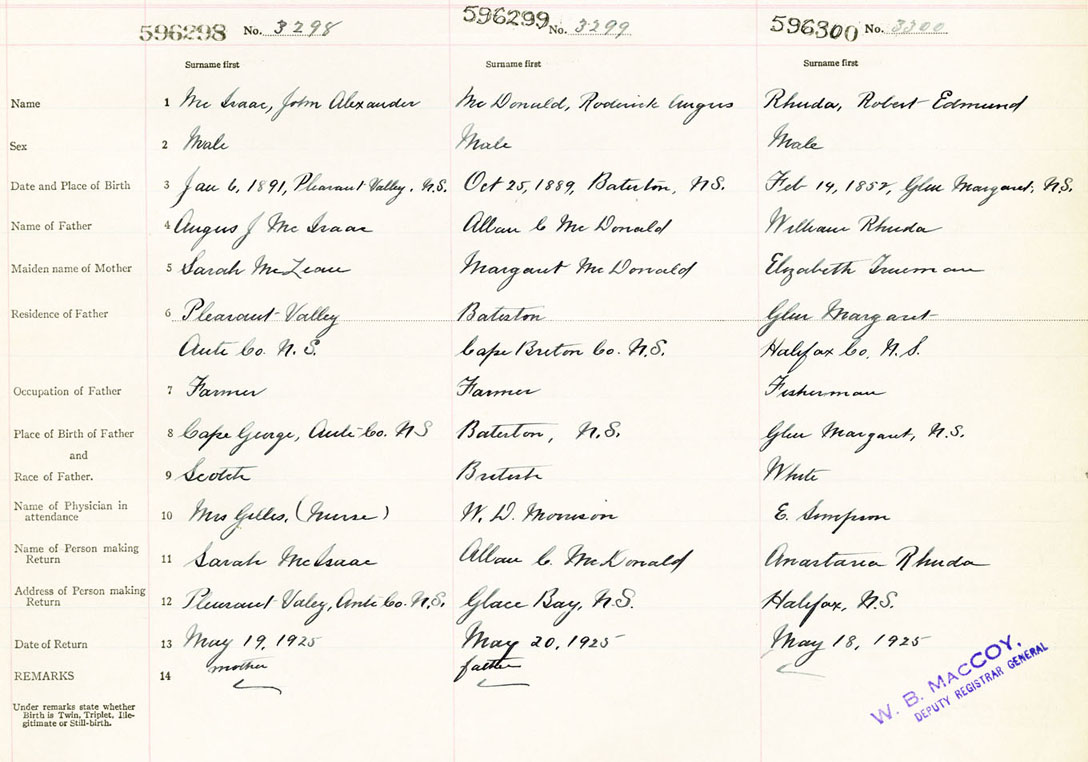 596298 No. 3298 596299 No. 3299 596300 No. 3300
Surname first Surname first Surname first
Name 1 Mc Isaac, John Alexander Mc Donald, Roderick Angus Rhuda, Robert Edmund
Sex 2 Male Male Male
Date and Place of Birth 3 Jan 6, 1891, Pleasant Valley, N.S. Oct 25, 1889, Bateston, N.S. Feb 14, 1852, Glen Margaret, N.S.
Name of Father 4 Angus J Mc Isaac Allan C Mc Donald William Rhuda
Maiden name of Mother 5 Sarah McLean Margaret McDonald Elizabeth Trueman
Residence of Father 6 Pleasant Valley Bateston Glen Margaret
Anti Co. N.S. Cape Breton Co. N.S. Halifax Co. N.S.
Occupation of Father 7 Farmer Farmer Fisherman
Place of Birth of Father 8 Cape George, Anti Co. NS Bateston, N.S. Glen Margaret, N.S.
and
Race of Father. 9 Scotch British White
Name of Physician in attendance 10 Mrs Gillis, (Nurse) W. D. Morrison E. Simpson
Name of Person making Return 11 Sarah McIsaac Allan C. McDonald Anastasia Rhuda
Address of Person making Return 12 Pleasant Valey, Anti Co. N.S. Glace Bay, N.S. Halifax, N.S.
Date of Return 13 May 19, 1925 May 20, 1925 May 18, 1925
mother father
REMARKS 14
Under remarks state whether
Birth is Twin, Triplet, Ille-
gitimate or Still-birth.
W. B. MACCOY,
DEPUTY REGISTRAR GENERAL